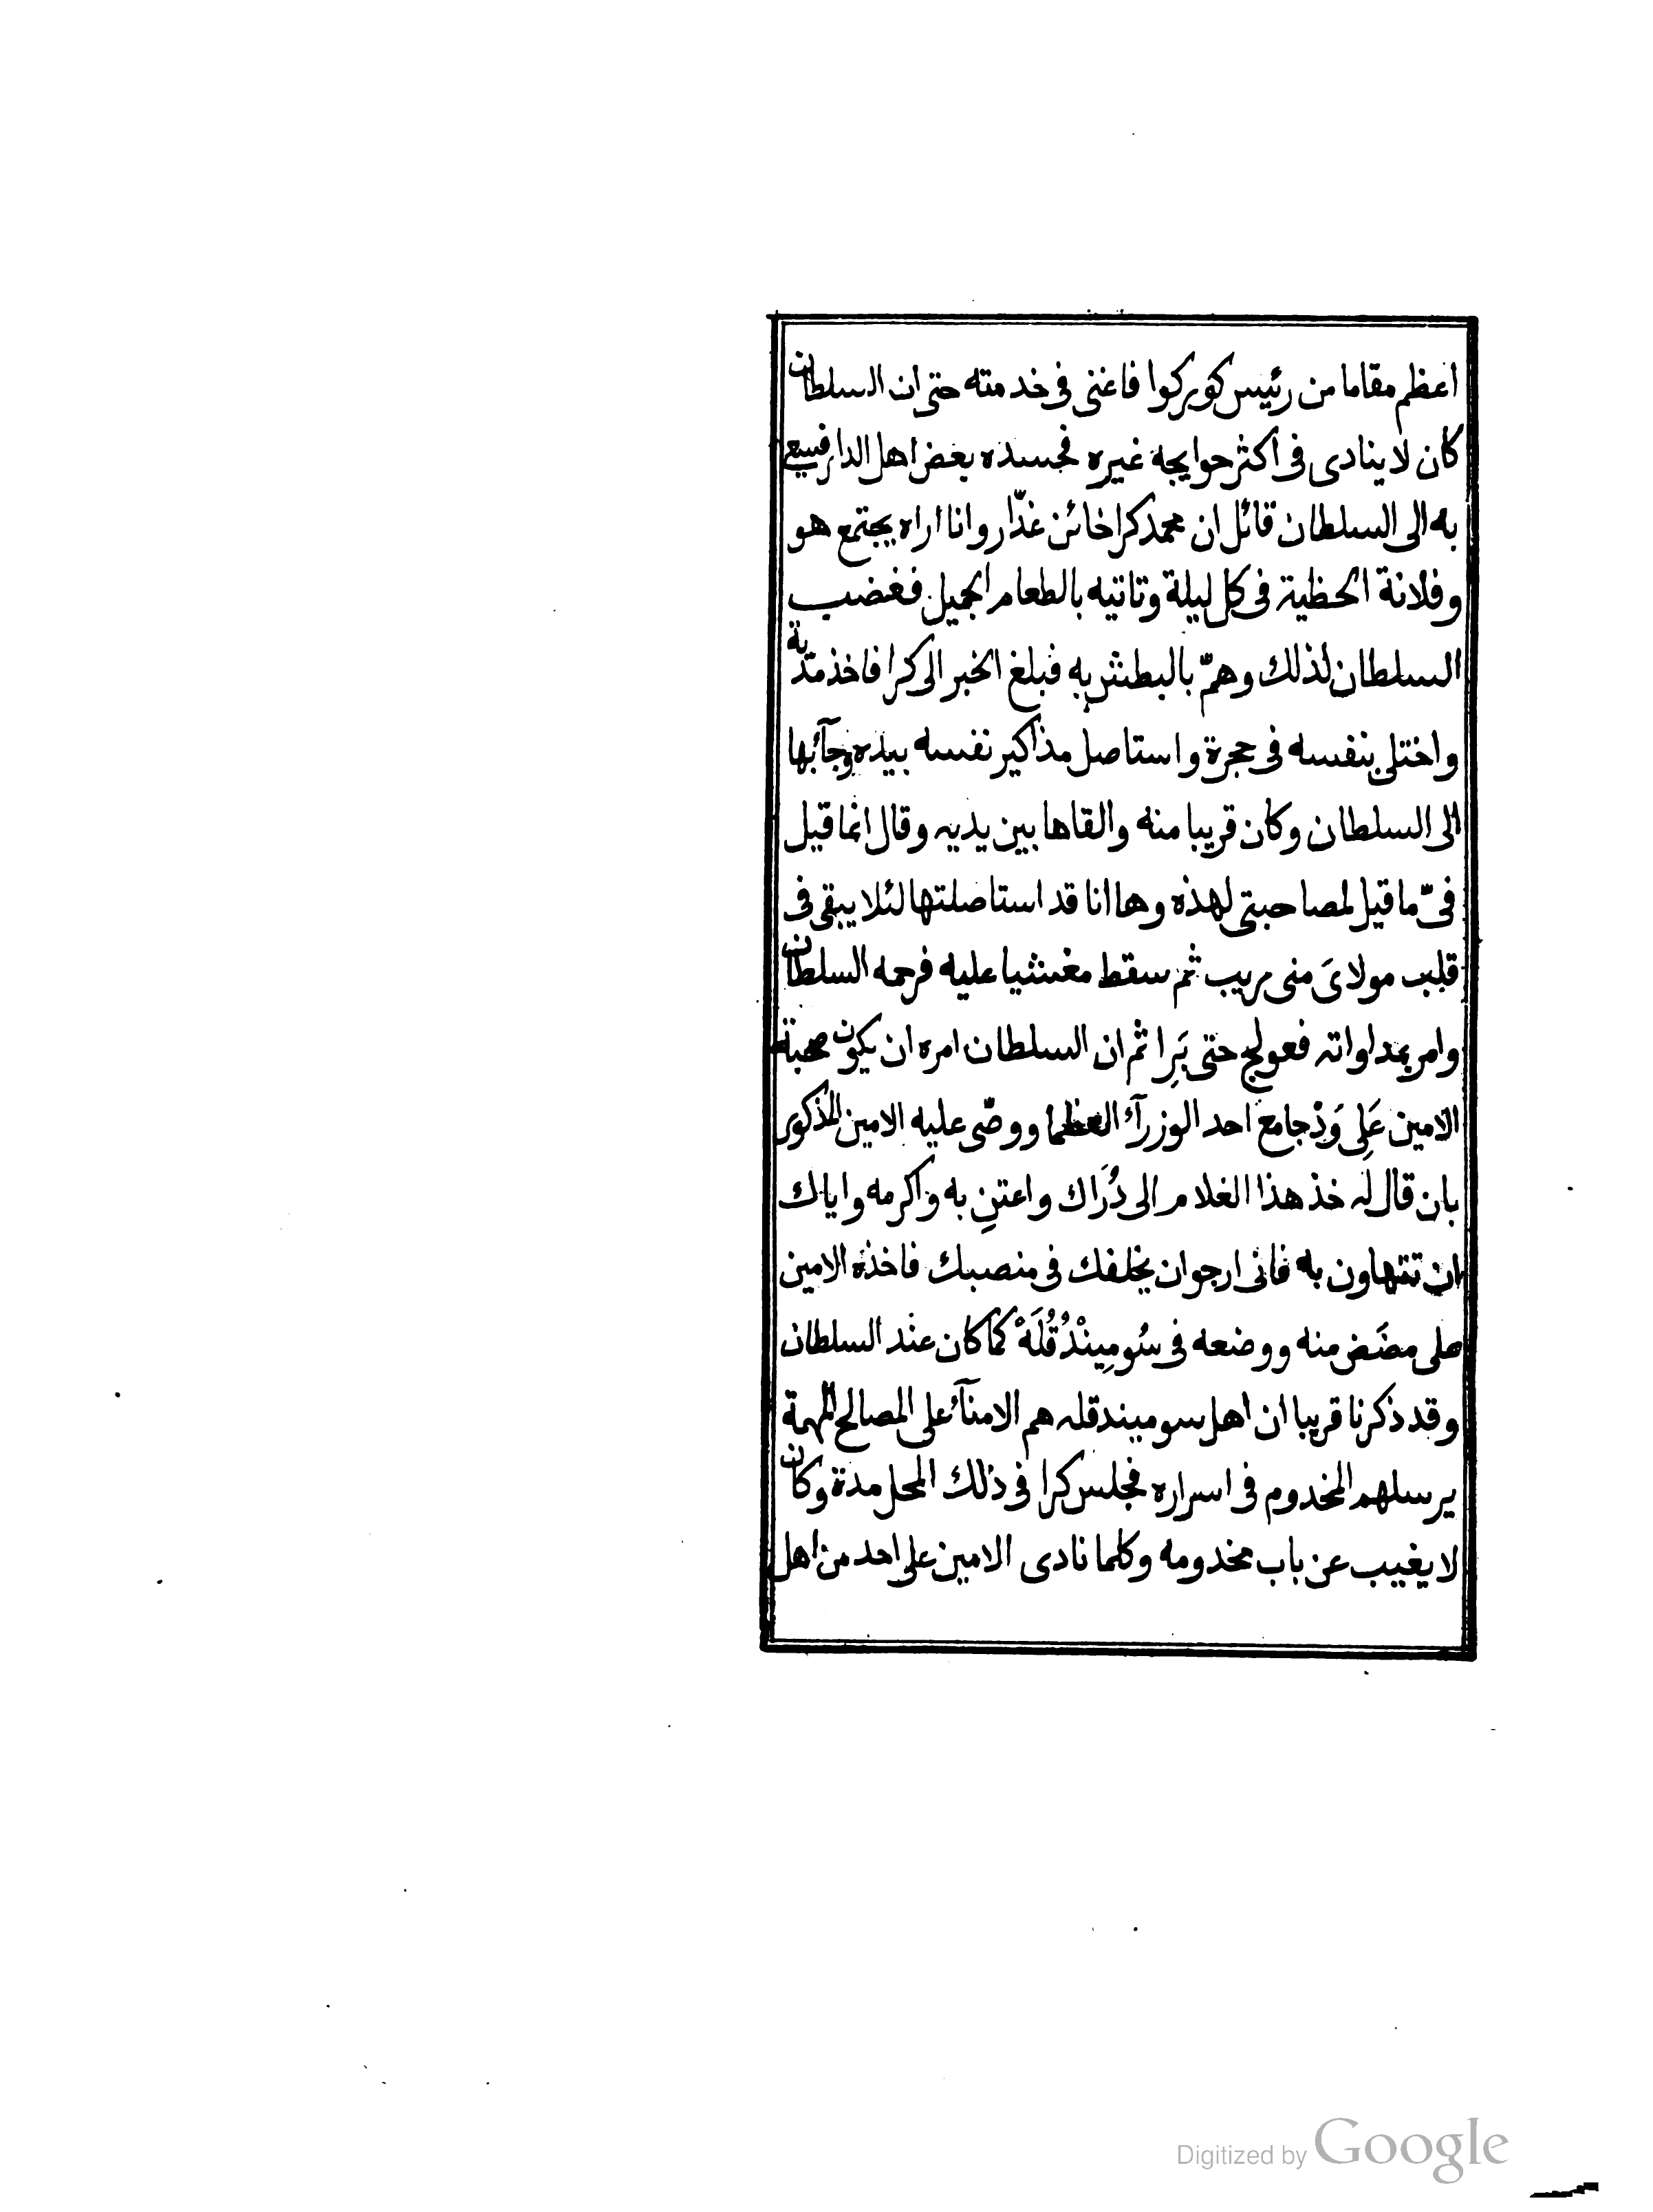 اعظم مقاما من رئيس كوركوا فاغنى فى خدمته حتى ان السلطان
كان لا ينادى فى اكثر حوايجه غيره فحسده بعض اهل الدار فسعى
به الى السلطان قائل ان محمد كرا خائن غدّار وانا اراه يجتمع هو
وفلانة الحظية فى كل ليلة وتاتيه بالطعام الجميل فغضب
السلطان لذلك وهمّ بالبطش به فبلغ الخبر الى كرا فاخذ مدية
واختلى بنفسه فى حجرة واستاصل مذاكير نفسه بيده وجآبها
الى السلطان وكان قريبا منه والقاها بين يديه وقال انما قيل
فىّ ما قيل لمصاحبتى لهذه وها انا قد استاصلتها لئلا يبقى فى
قلب مولاىَ منى ريب ثم سقط مغشيا عليه فرحمه السلطان
وامر بمداواته فعولج حتى بَرِا ثم ان السلطان امره ان يكون صحبة
الامين عَلِى وَدْ جامع احد الوزرآء العظما ووصّى عليه الامين المذكور
بان قال له خذ هذا الغلام الى دُرَاك واعتنِ به واكرمه واياك
ان تتهاون به فانى ارجو ان يخلفك فى منصبك فاخذه الامين
على مضَض منه ووضعه فى سُومِينْدُقُلَهْ كما كان عند السلطان
وقد ذكرنا قريبا ان اهل سوميندقله هم الامنآء على المصالح المهمة
يرسلهم المخدوم فى اسراره فجلس كرا فى ذلك المحل مدة وكان
لا يغيب عن باب مخدومه وكلما نادى الامين على احد من اهل
Digitized by Google